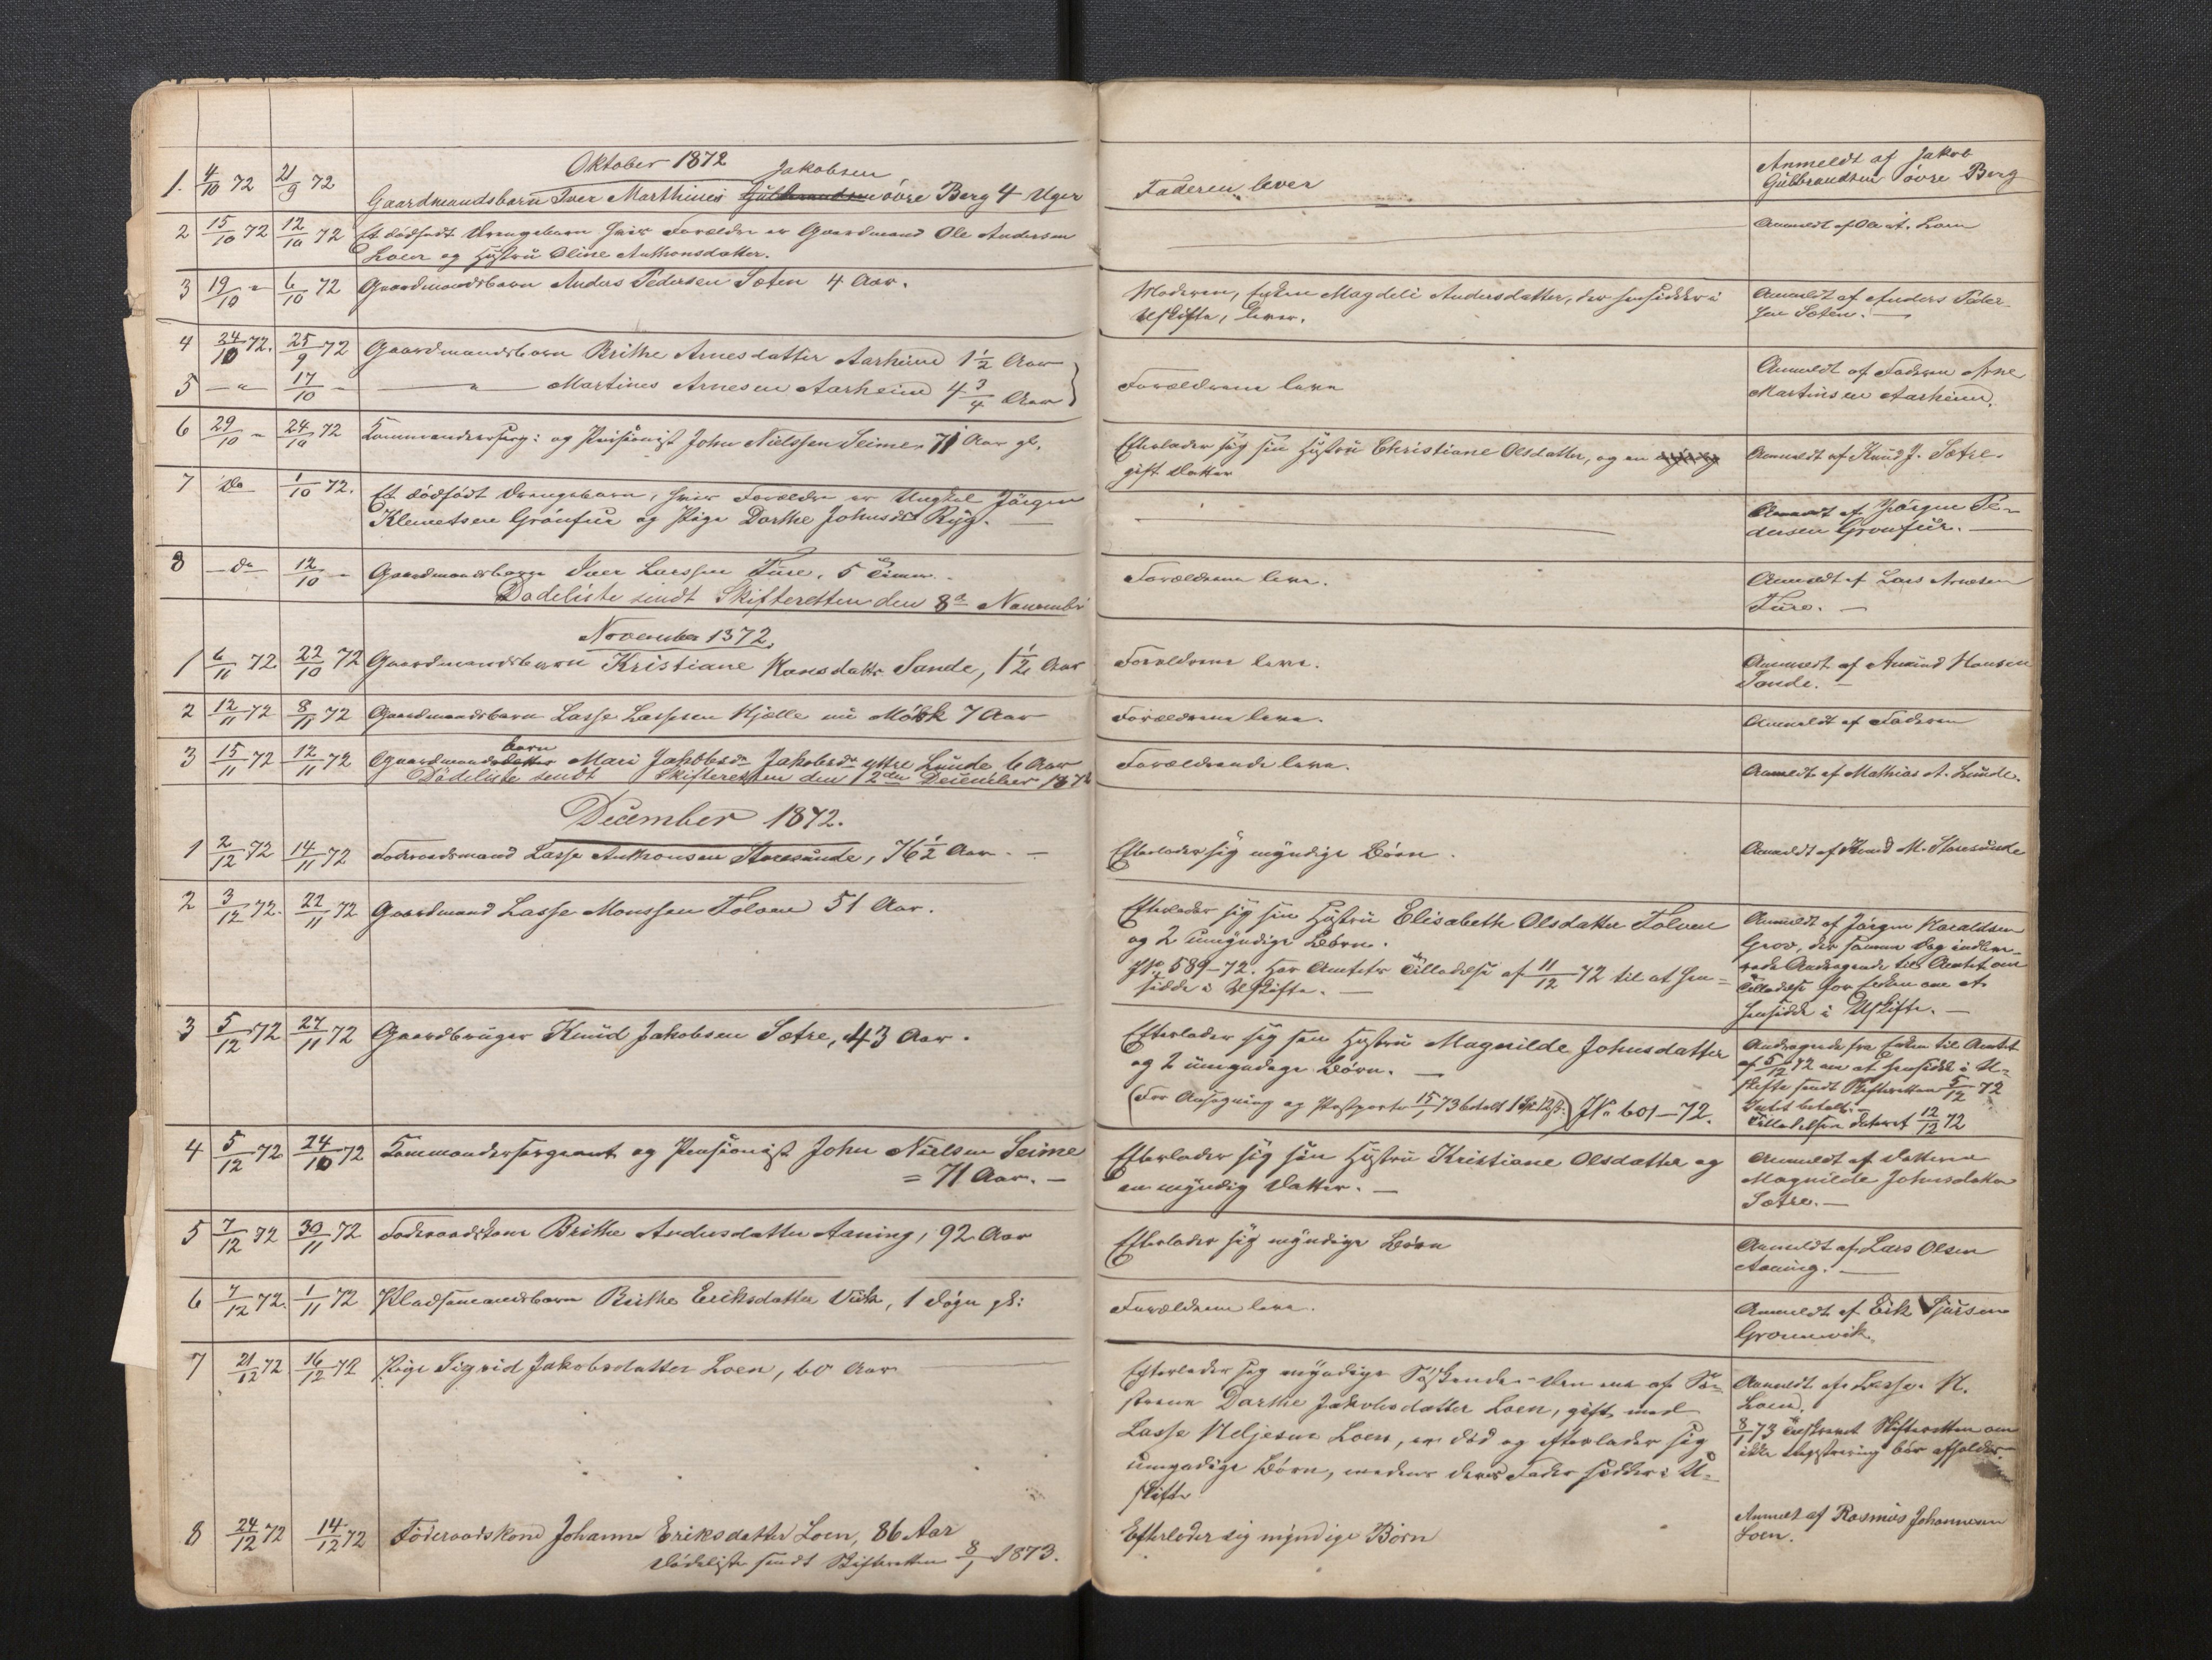 Oktober 1872
1. 4/10 72 21/9 72 Gaardmandsbarn Iver Marthinus Gulbrandsen Jakobsen övre Berg 4 Uger
Faderen lever
Anmeldt af Jakob
Gulbrandsen övre Berg
2 15/10 72 12/10 72 Et dödfödt Drengebarn hvis Forældre er Gaardmand Ole Andersen
Loen og Hustru Oline Anthonsdatter.
Anmeldt af Ole A. Loen
3 19/10 " 6/10 72 Gaardmandsbarn Anders Pedersen Sæten 4 Aar.
Moderen, Enken Magdeli Andersdatter, der hensidder i
Uskifte, lever.
Anmeldt af Anders Peder-
sen Sæten. —
4 24/10 72. 25/9 72 Gaardmandsbarn Brithe Arnesdatter Aarheim 1 1/2 Aar
5 — " 17/10 — — " — Martines Arnesen Aarheim 4 3/4 Aar
Forældrene leve
Anmeldt af Faderen Arne
Martinsen Aarheim.
6 29/10 — 24/10 72 Kommandeersersg: og Pensionist John Nielssen Seime, 71 Aar gl.
Efterlader sig sin Hustru Christiane Olsdatter, og en
gift Datter
Anmeldt af Knud J. Sætre.
7 Do 1/10 72. Et dödfödt Drengebarn, hvis Forældre er Ungkal Jörgen
Klemetsen Grönfur og Pige Dorthe Johnsdt Ryg. —
Anmeldt af Jörgen Pe-
dersen Gronfur. —
8 — do — 12/10 — Gaardmandsbarn Iver Larssen Ture, 5 Timer.
Forældrene leve.
Anmeldt af Lars Arnesen
Ture. —
Dödeliste sendt Skifteretten den 8de Novembr
November 1872.
1 6/11 72 22/10 72 Gaardmandsbarn Kristiane Hansdattr Sande, 1 1/2 Aar
Forældrene leve.
Anmeldt af Amund Hansen
Sande. —
2 12/11 72 8/11 72 Gaardmandsbarn Lasse Lassesen Hjælle nu Mörk 7 Aar
Forældrene leve.
Anmeldt af Faderen
3 15/11 72 12/11 72 Gaardmandsdatter barn Mari Jakobsdr Jakobsdr yttre Lunde 6 Aar
Forældrende leve.
Anmeldt af Mathias A. Lunde.
Dödeliste sendt Skifteretten den 12den December 1872
December 1872.
1 2/12 72 14/11 72 Foderaadsmand Lasse Anthonsen Storesunde, 76 1/2 Aar. —
Efterlader sig myndige Börn.
Anmeldt af M. Storesunde
2 3/12 72. 22/11 72 Gaardmand Lasse Monssen Tolven 51 Aar.
Efterlader sig sin Hustru Elisabeth Olsdatter Tolven
og 2 umyndige Börn.
JNo 589–72. Har Amtets Tilladelse af 11/12 72 til at hen-
sidde i Uskifte. —
Anmeldt af Jörgen Haraldsen
Grov, der samme Dag indleve-
rede Andragende til Amtet om
Tilladelse for Enken om at
hensidde i Uskifte. —
3 5/12 72 27/11 72 Gaardbruger Knud Jakobsen Sætre, 43 Aar.
Efterlader sig sin Hustru Magnilde Johnsdatter
og 2 umyndige Börn. —
(For Ansögning og Postporto 15/1 73 betalt 1 Sp 12 ß.) JNo 601–72.
Andragende fra Enken til Amtet
af 5/12 72 om at hensidde i U-
skifte sendt Skifteretten 5/12 72
Intet betalt. —
Tilladelsen dateret 12/12 72
4 5/12 72 24/10 72 Kommandersergeant og Pensionist John Nielsen Seime
= 71 Aar. —
Efterlader sig sin Hustru Kristiane Olsdatter og
en myndig Datter. —
Anmeldt af Datteren
Magnilde Johnsdatter
Sætre. —
5 7/12 72 30/11 72 Foderaadskone Brithe Andersdatter Aaning, 92 Aar
Efterlader sig myndige Börn
Anmeldt af Lars Olsen
Aaning. —
6 7/12 72. 1/11 72 Pladsemandsbarn Brithe Eriksdatter Viik, 1 Dögn gl:
Forældrene leve.
Anmeldt af Erik Sjursen
Gronnevik.
7 21/12 72 16/12 72 Pige Sigrid Jakobsdatter Loen, 60 Aar
Efterlader sig myndige Söskende – Den ene af Sö-
strene Dorthe Jakobsdatter Loen, gift med
Lasse Neljesen Loen, er död og efterlader sig
umyndige Börn, medens deres Fader sidder i U-
skifte
Anmeldt af Lasse N.
Loen.
8/1 73 tilskrevet Skifteretten om
ikke Registrering bör afholdes
8 24/12 72 14/12 72 Föderaadskone Johanne Eriksdatter Loen, 86 Aar
Efterlader sig myndige Börn
Anmelt af Rasmus Johannesen
Loen.
Dödeliste sendt Skifteretten 8/1 1873.